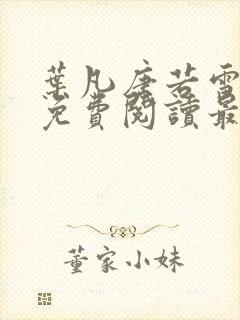 葉凡唐若雪
免費閱讀最
董家小妹